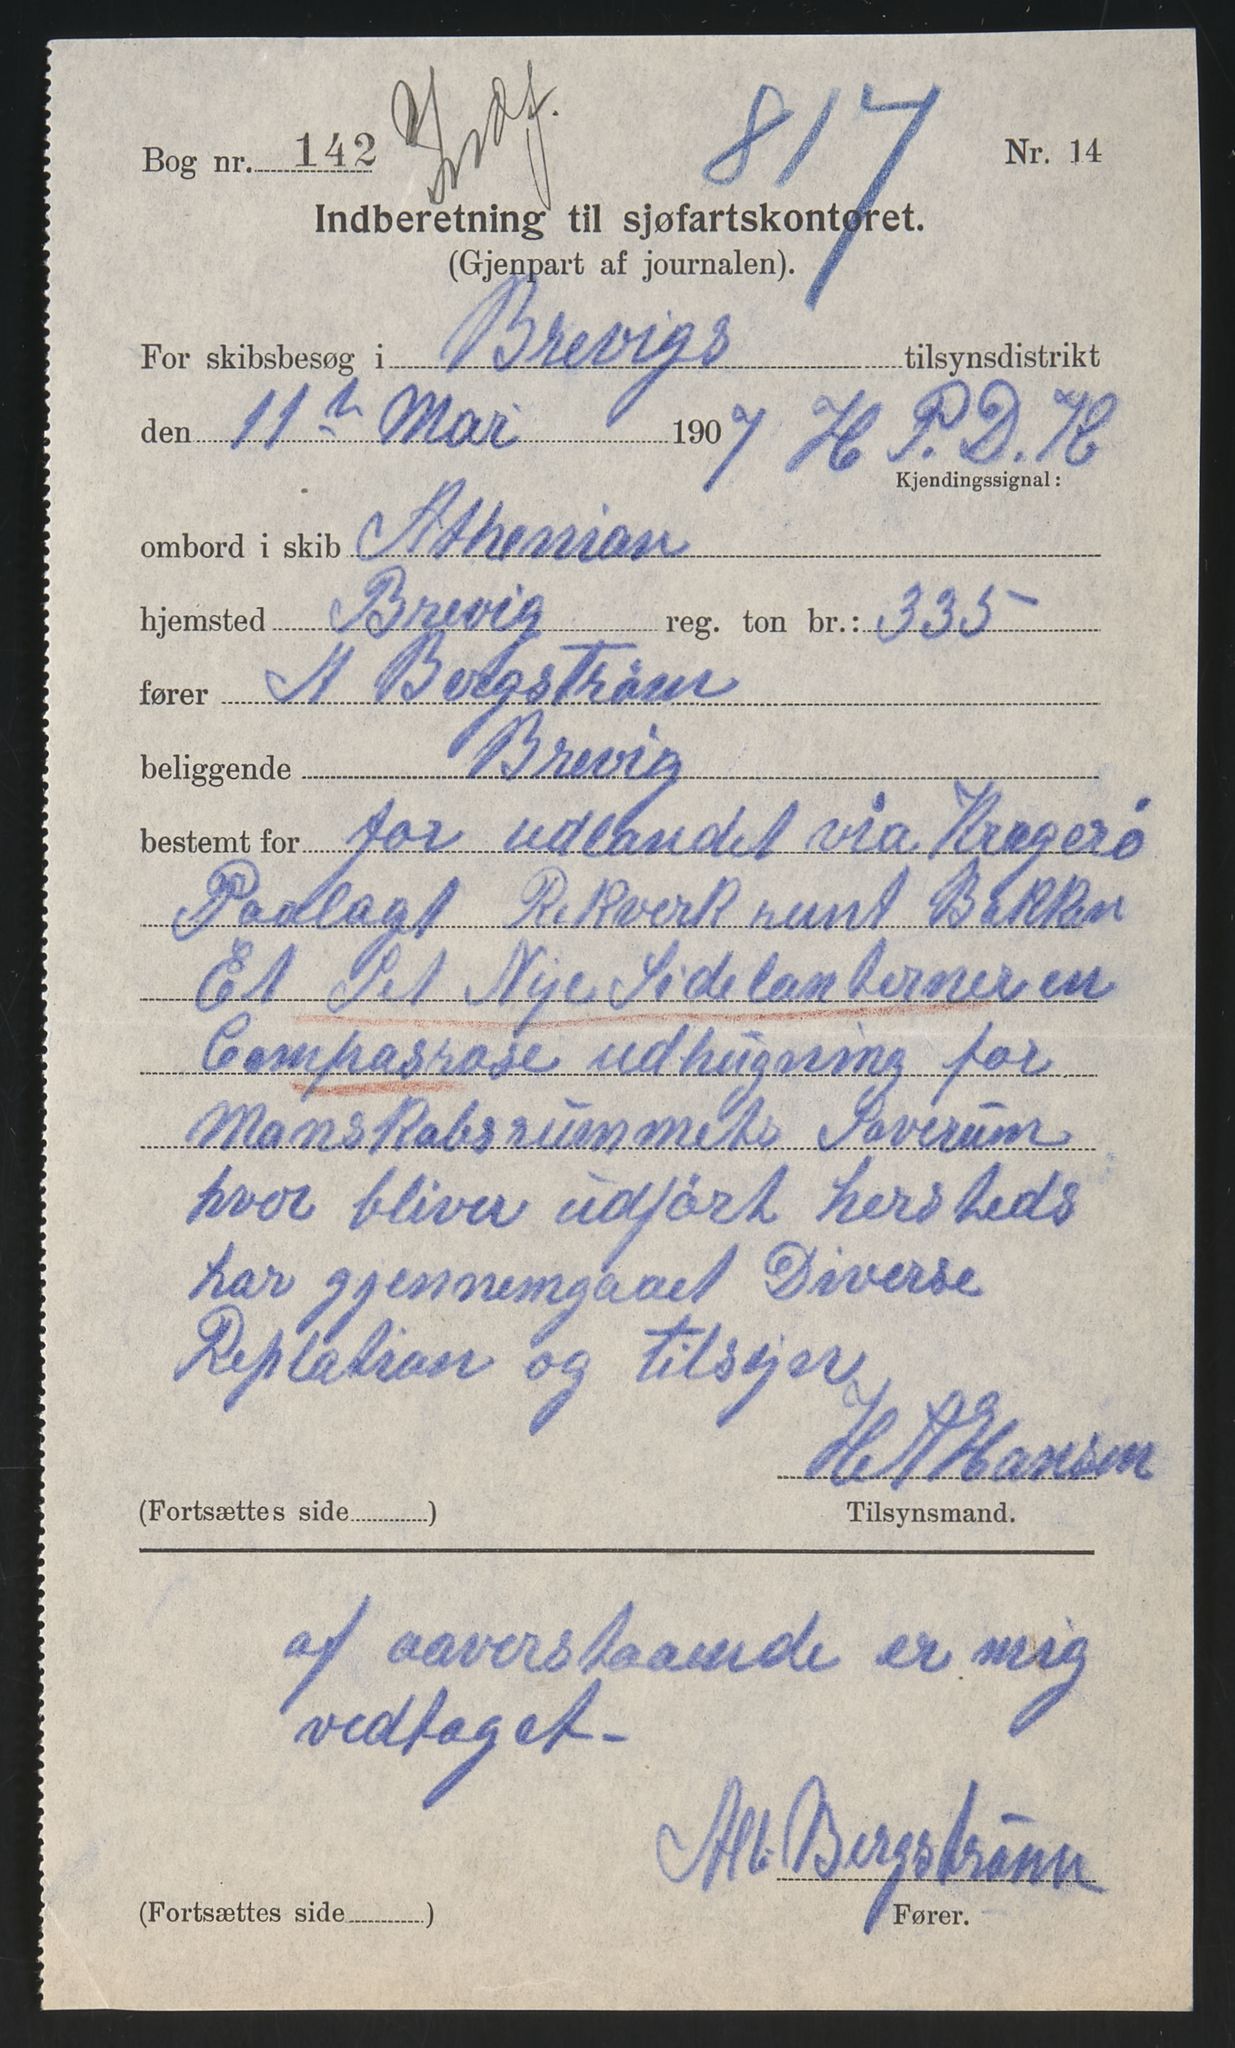 817
Bog nr. 142
Nr. 14
Indberetning til sjøfartskontoret.
(Gjenpart af journalen).
For skibsbesøg i Brevigs tilsynsdistrikt
den 11th Mai 1907 H P. D. H
Kjendingssignal:
ombord i skib Athenian
hjemsted Brevig reg. ton br.: 335
fører A Bergström
beliggende Brevig
bestemt for for udlandet via Kragerö
Paalagt Rekverk runt Bakken
Et Set Nye Sidelanterner en
Compasrose udhugning for
Manskabsrummets Soverum
hvor bliver udfört hersteds
har gjennemgaaet Diverse
Replation og tilsyn
H A Hansen
(Fortsættes side ) Tilsynsmand.
af aaverstaaende er mig
vedtaget -
Alb. Bergström
(Fortsættes side ) Fører.